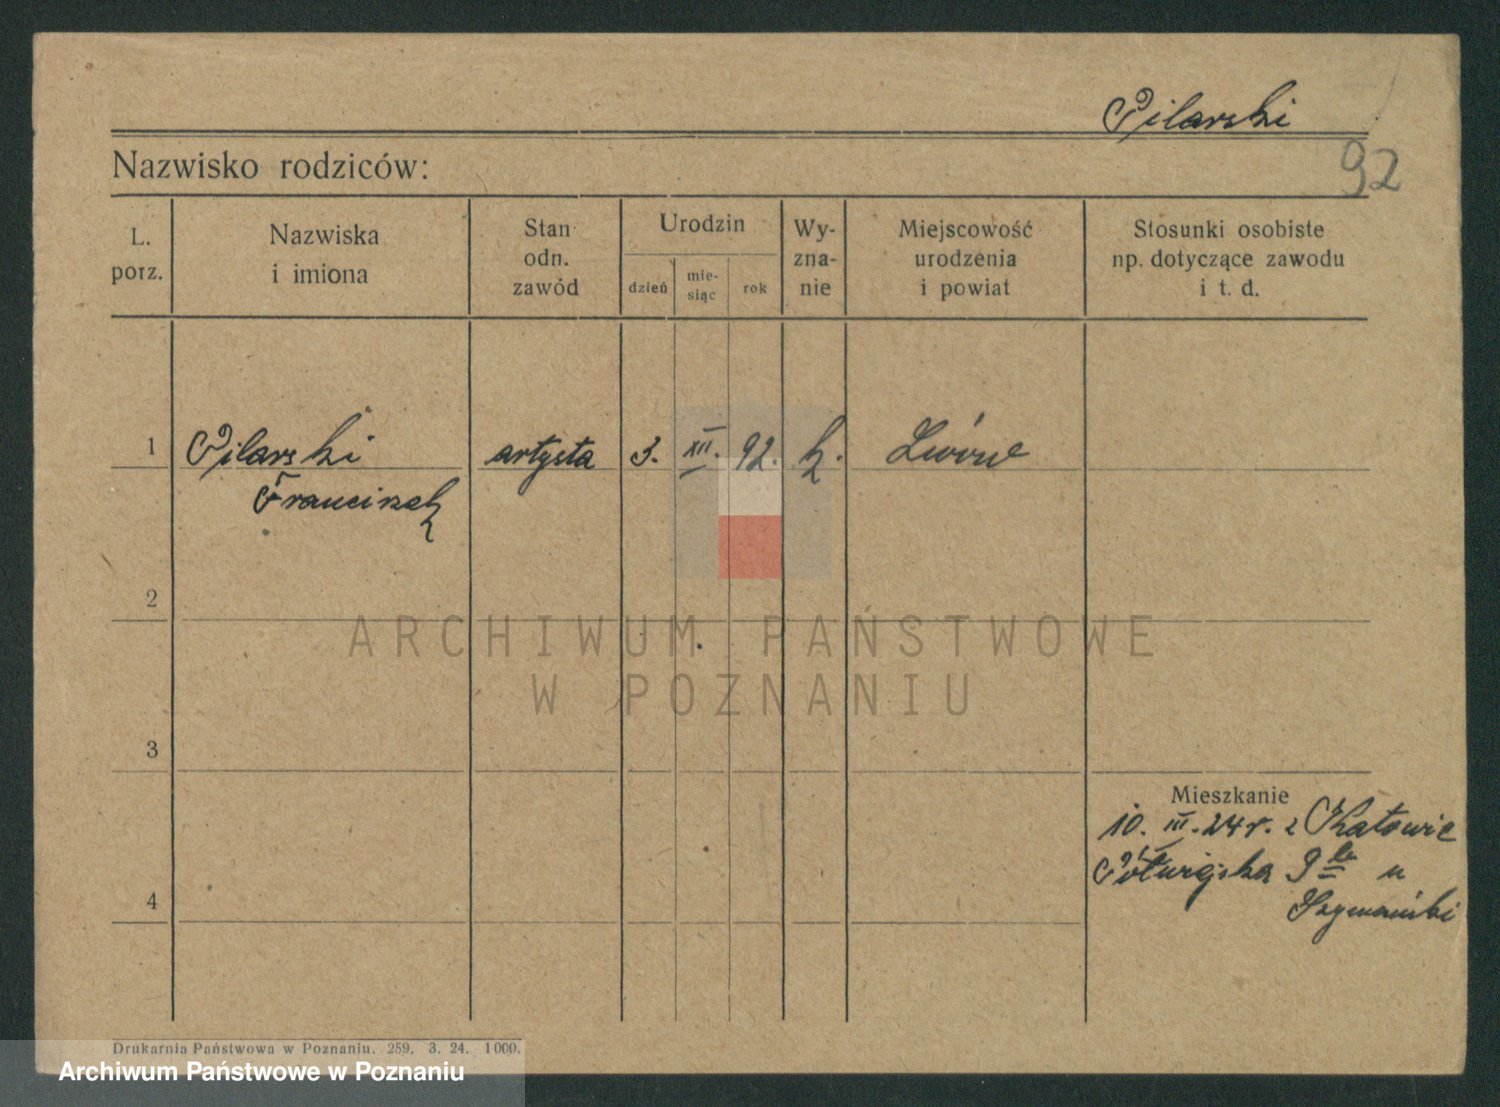 Pilarski
Nazwisko rodziców:
92
L. porz.
Nazwiska i imiona
Stan odn. zawód
Urodzin
dzień
mie-siąc
rok
Wy-zna-nie
Miejscowość urodzenia i powiat
Stosunki osobiste np. dotyczące zawodu i t. d.
1 Pilarski artysta 3. XII. 92. k. Lwów
Franciszek
2
ARCHIWUM PAŃSTWOWE
W POZNANIU
3
Mieszkanie
10. III. 24 r. z Katowic
Półwiejska 9 u
4
Szymański
Drukarnia Państwowa w Poznaniu. 259. 3. 24. 1000.
Archiwum Państwowe w Poznaniu